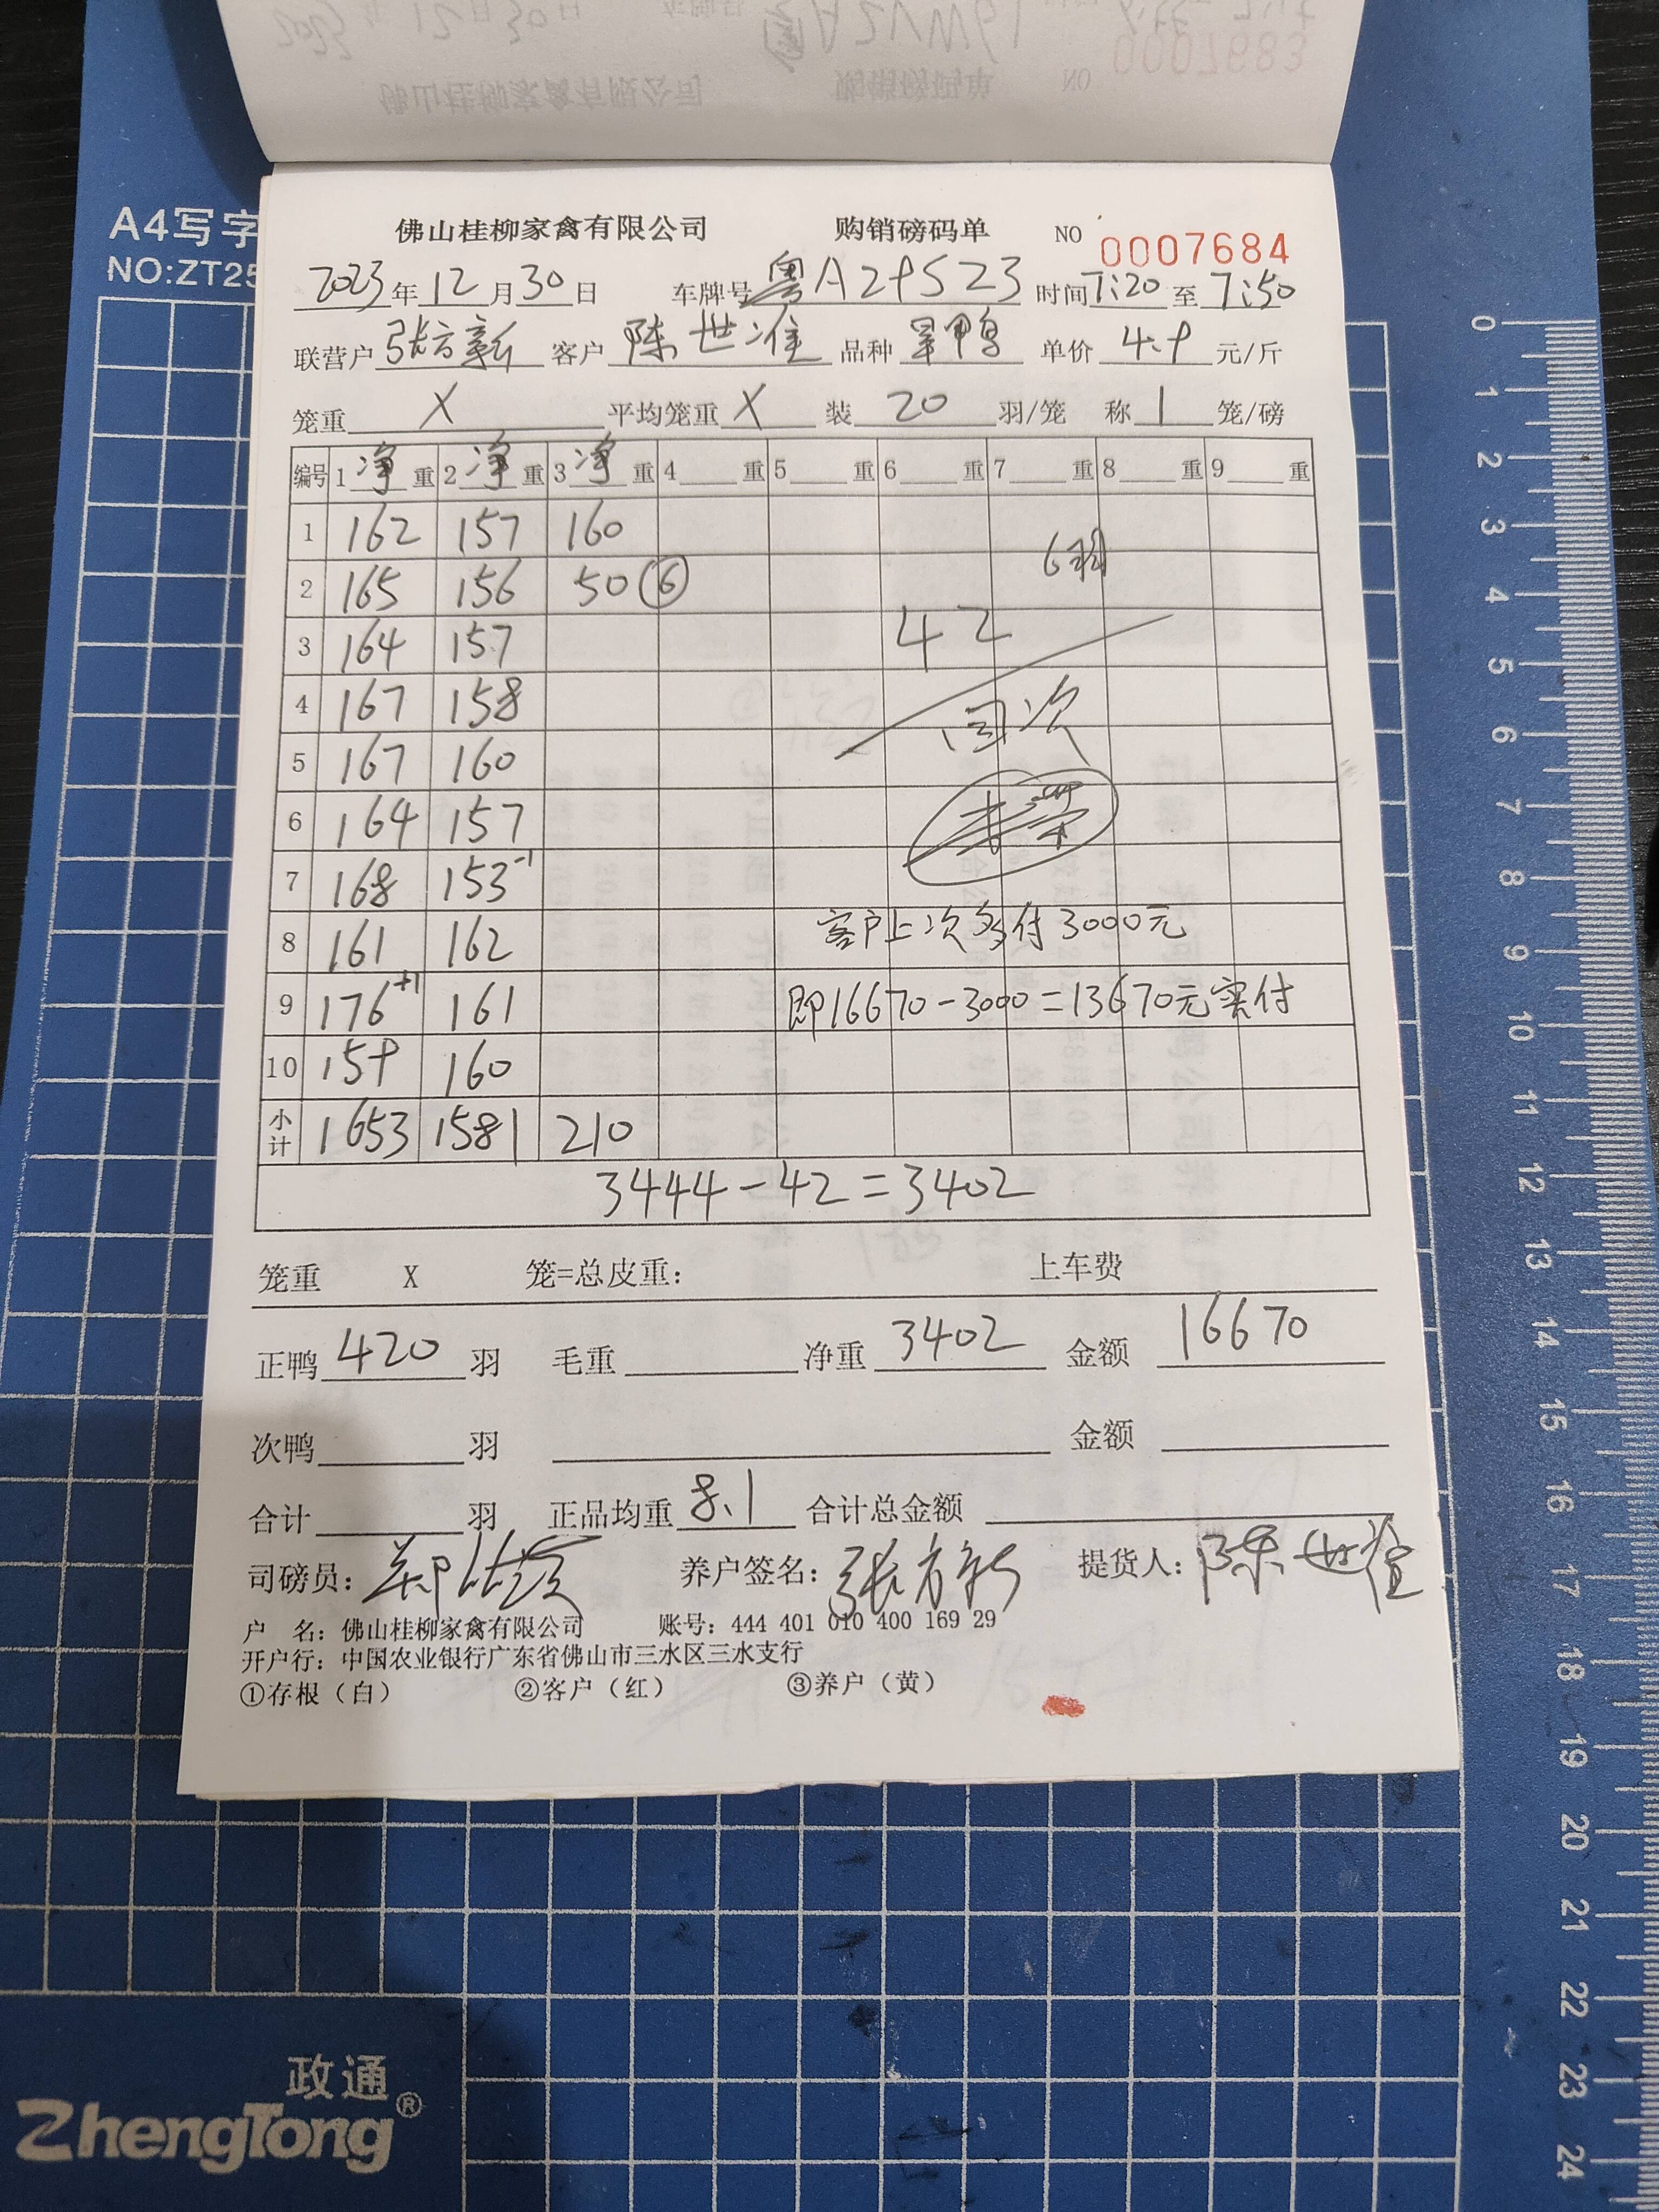 A4写字
NO:ZT25
佛山桂柳家禽有限公司 购销磅码单 NO 0007684
2023年12月30日 车牌号 粤A29523 时间 7:20 至 7:50
联营户 张方新 客户 陈世准 品种 旱鸭 单价 4.9 元/斤
笼重 X 平均笼重 X 装 20 羽/笼 称 1 笼/磅
编号 1 净 重 2 净 重 3 净 重 4 重 5 重 6 重 7 重 8 重 9 重
1 162 157 160
6羽
2 165 156 50 ⑥
3 164 157 42
4 167 158 回次
5 167 160
6 164 157
7 168 153-1
8 161 162 客户上次多付3000元
9 176+1 161 即16670-3000=13670元实付
10 159 160
小计 1653 1581 210
3444-42=3402
笼重 X 笼=总皮重: 上车费
正鸭 420 羽 毛重 净重 3402 金额 16670
次鸭 羽 金额
合计 羽 正品均重 8.1 合计总金额
司磅员: 养户签名: 张方新 提货人: 陈世准
户 名: 佛山桂柳家禽有限公司 账号: 444 401 010 400 169 29
开户行: 中国农业银行广东省佛山市三水区三水支行
①存根（白） ②客户（红） ③养户（黄）
0 1 2 3 4 5 6 7 8 9 10 11 12 13 14 15 16 17 18 19 20 21 22 23 24
政通
ZhengTong®